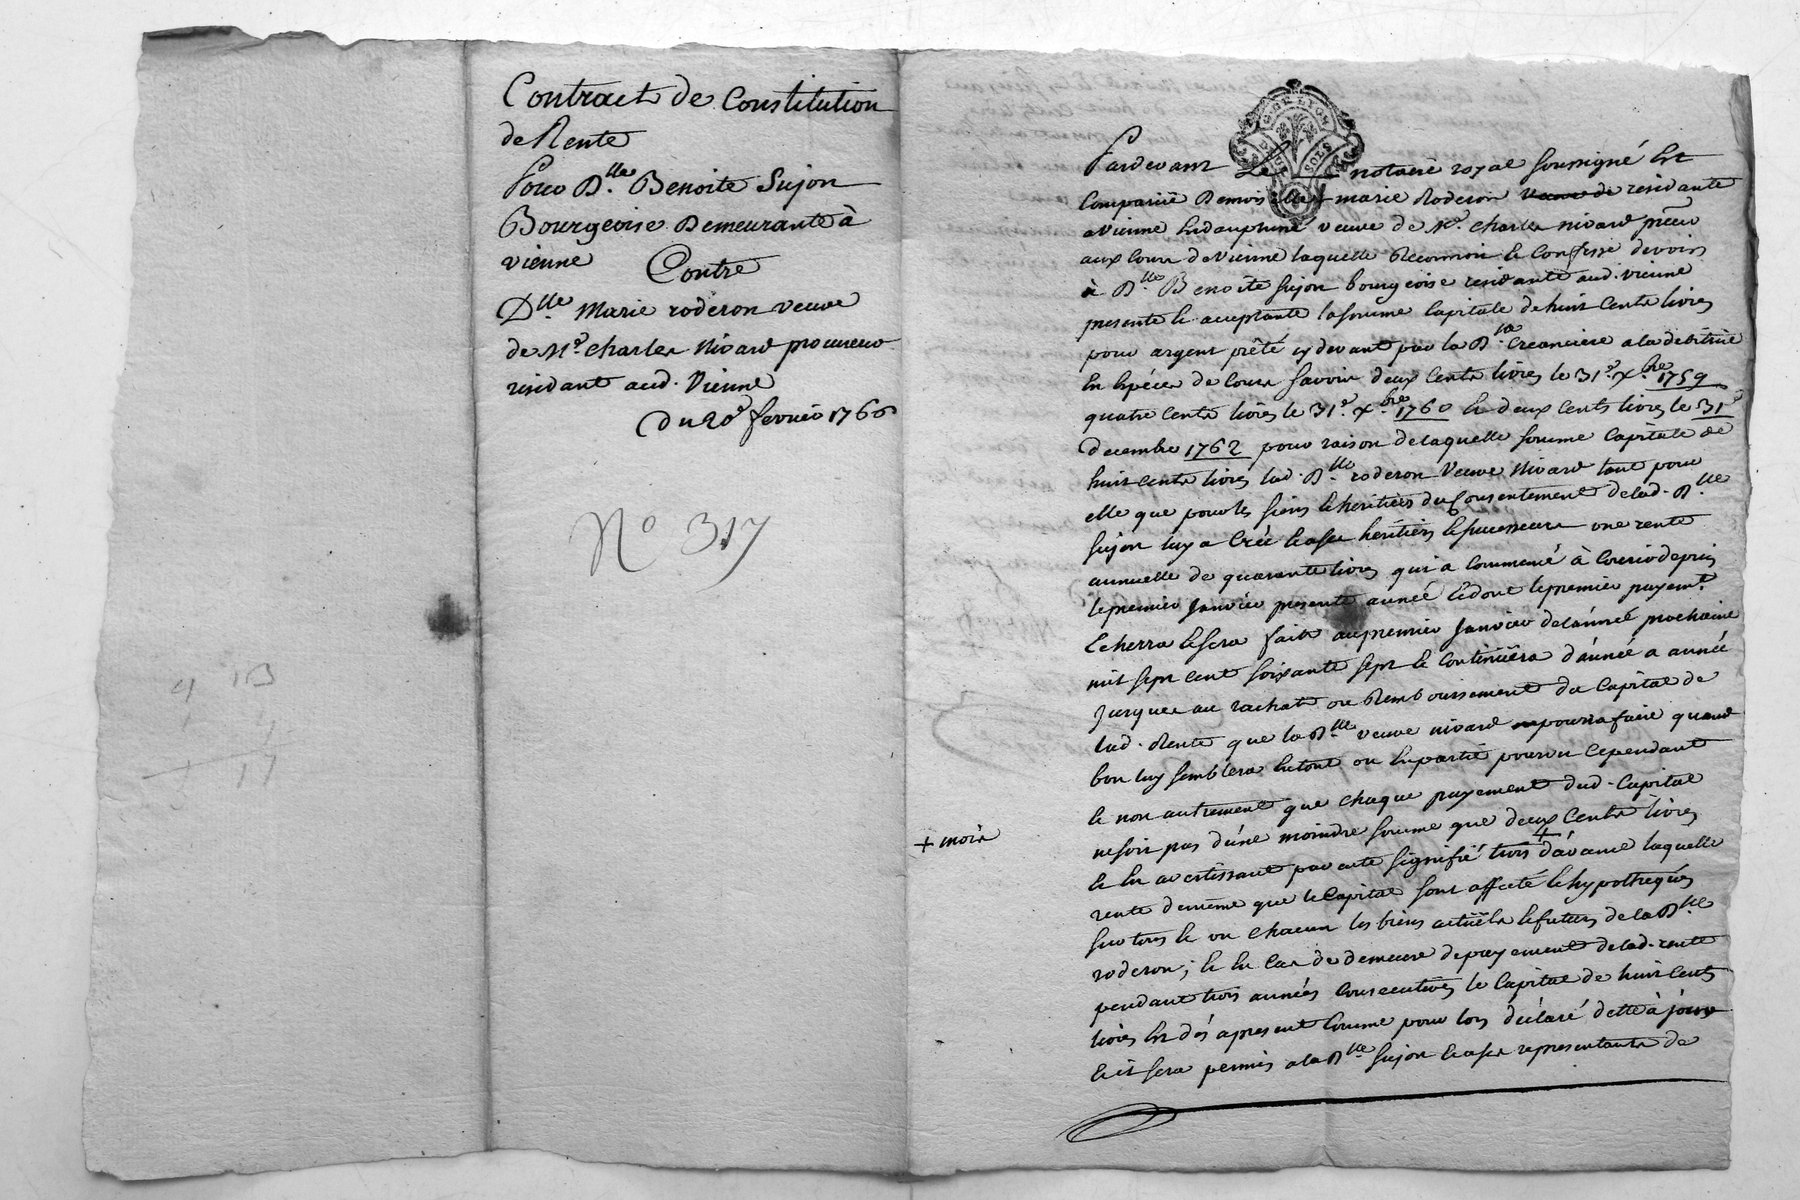 Contract de Constitution
de Rente
Pour Dlle. Benoite Sujon
Bourgeoise Demeurante à
vienne Contre
Dlle. Marie roderon veuve
de Me. charles Nivard procureur
residant aud. Vienne
Du 20e fevrier 1766
No 317
+ mois
G. DE LYON
DEUX SOLS
Pardevant Le notaire royal soussigné Est
Comparüe Demoiselle marie Roderon veuve de residante
a Vienne En dauphiné veuve de Me. charles nivard procur
aux Cours de Vienne laquelle Reconnoit Et Confesse devoir
à Dlle. Benoite Sujon bourgeoise residante aud. vienne
presente Et acceptante la somme Capitale de huit Cents livres
pour argent prêté cy devant par la Dlle. Creanciere a la debitrice
En Espéces de Cours savoir deux Cents livres le 31e. xbre 1759
quatre Cents livres le 31e. xbre 1760 Et deux Cents livres le 31e
Decembre 1762 pour raison de laquelle somme Capitale de
huit Cents livres lad. Dlle. roderon Veuve Nivard tant pour
elle que pour les siens Et heritiers du Consentement de lad. Dlle
Sujon luy a Créé Et a ses heritiers Et successeurs une rente
annuelle de quarante livres qui a Commencé à Courir depuis
le premier Janvier presente année Et dont le premier payemt.
Echerra Et sera fait au premier Janvier de l'année prochaine
mil sept cent soixante sept Et Continüera d'année a année
Jusques au rachat ou Remboursement du Capital de
lad. Rente que la Dlle. veuve nivard pourra faire quand
bon luy semblera En tout ou En partie pourvu Cependant
Et non autrement que chaque payement dud. Capital
ne soit pas d'une moindre somme que deux Cents livres
Et En avertissant par acte signifié trois + d'avance laquelle
rente de même que le Capital sont affecté Et hypothequés
sur tous Et un chacun les biens actüels Et futurs de la Dlle.
roderon; Et En Cas de demeure de payement de lad. rente
pendant trois années Consecutives le Capital de huit Cents
livres Est dès apresent Comme pour lors déclaré dette à jour
Et il sera permis a la Dlle. Sujon Et a ses representants de